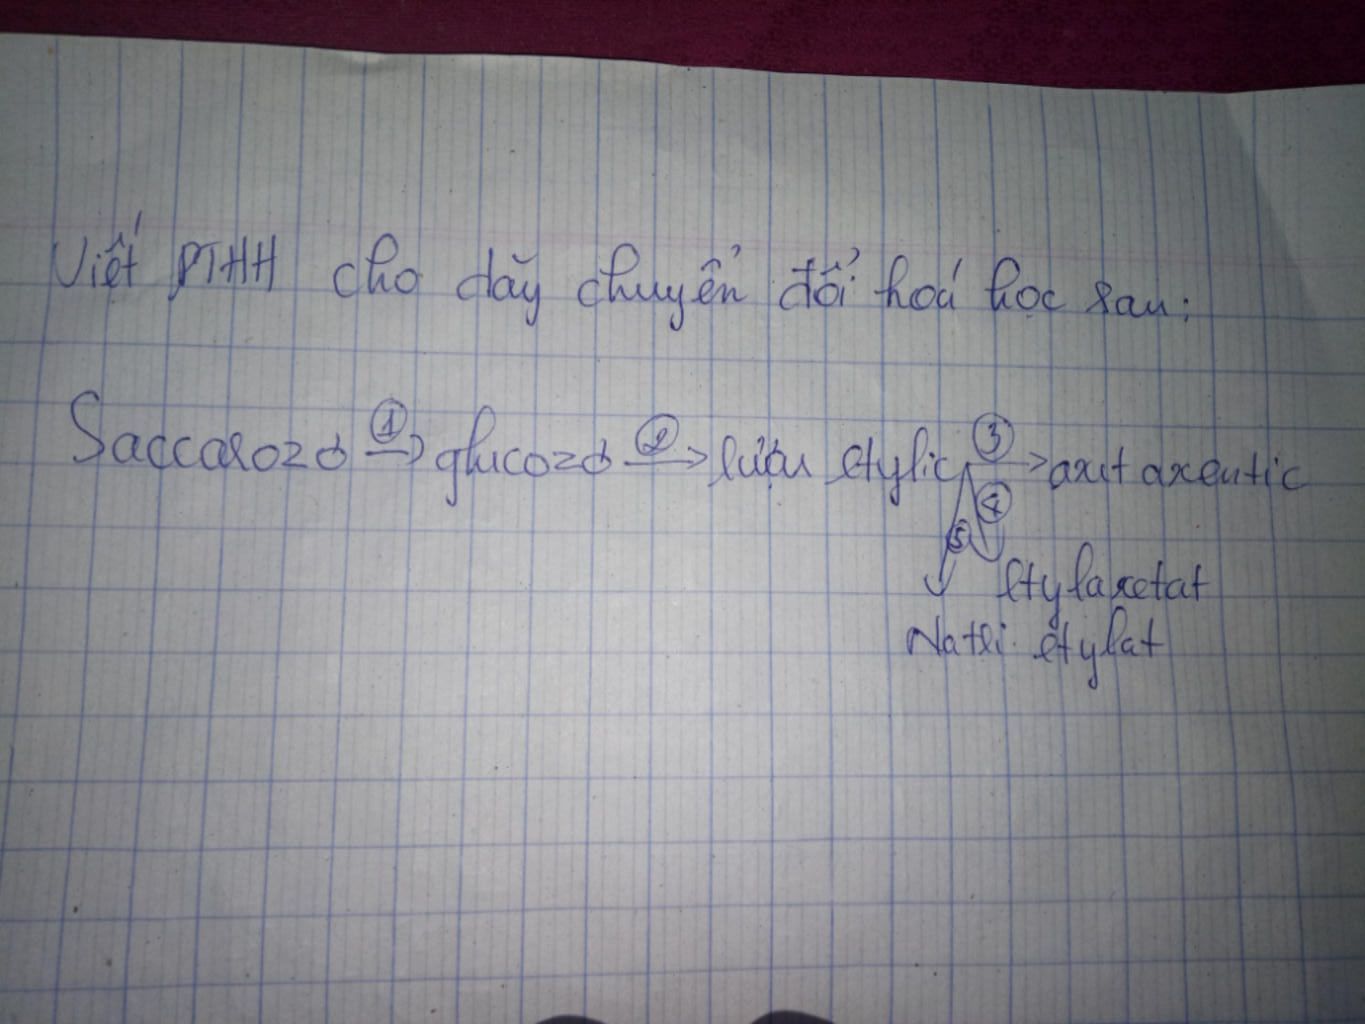 Viết PTHH cho dãy chuyển đổi hoá học sau:
Saccarozơ ①→ glucozơ ②→ rượu etylic ③→ axit axentic
④
⑤
etylaxetat
Natri etylat